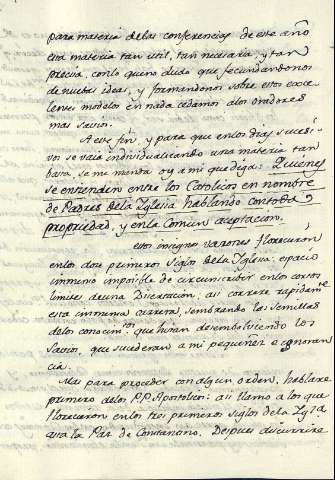 para materia de las conferencias de este año
esta materia tan util, tan necesaria, y tan
precisa, con lo que no dudo que fecundandonos
de nuevas ideas, y formandonos sobre estos exce
lentes modelos en nada cedamos a los oradores
mas savios.
A este fin, y para que en los dias sucesi
vos se vaia individualizando una materia tan
basta, se me manda oy a mi que diga: Quienes
se entienden entre los Catolicos en nombre
de Padres de la Yglesia hablando con toda
propriedad, y en la comun aceptacion.
estos insignes varones florecieron
en los doce primeros siglos de la Yglesia, espacio
immenso imposible de circunscribir en los cortos
limites de una Disertacion, asi correre rapidamte
esta immensa carrera, sembrando las semillas
de los conocim.tos que hiran desembolviendo los
savios, que sucederan a mi pequeñez e ignoran
cia.
Mas para proceder con algun orden, hablare
primero de los P.P. Apostolicos: asi llamo a los que
florecieron en los tres primeros siglos de la Ygla
asta la Paz de Constantino. Despues discurrire